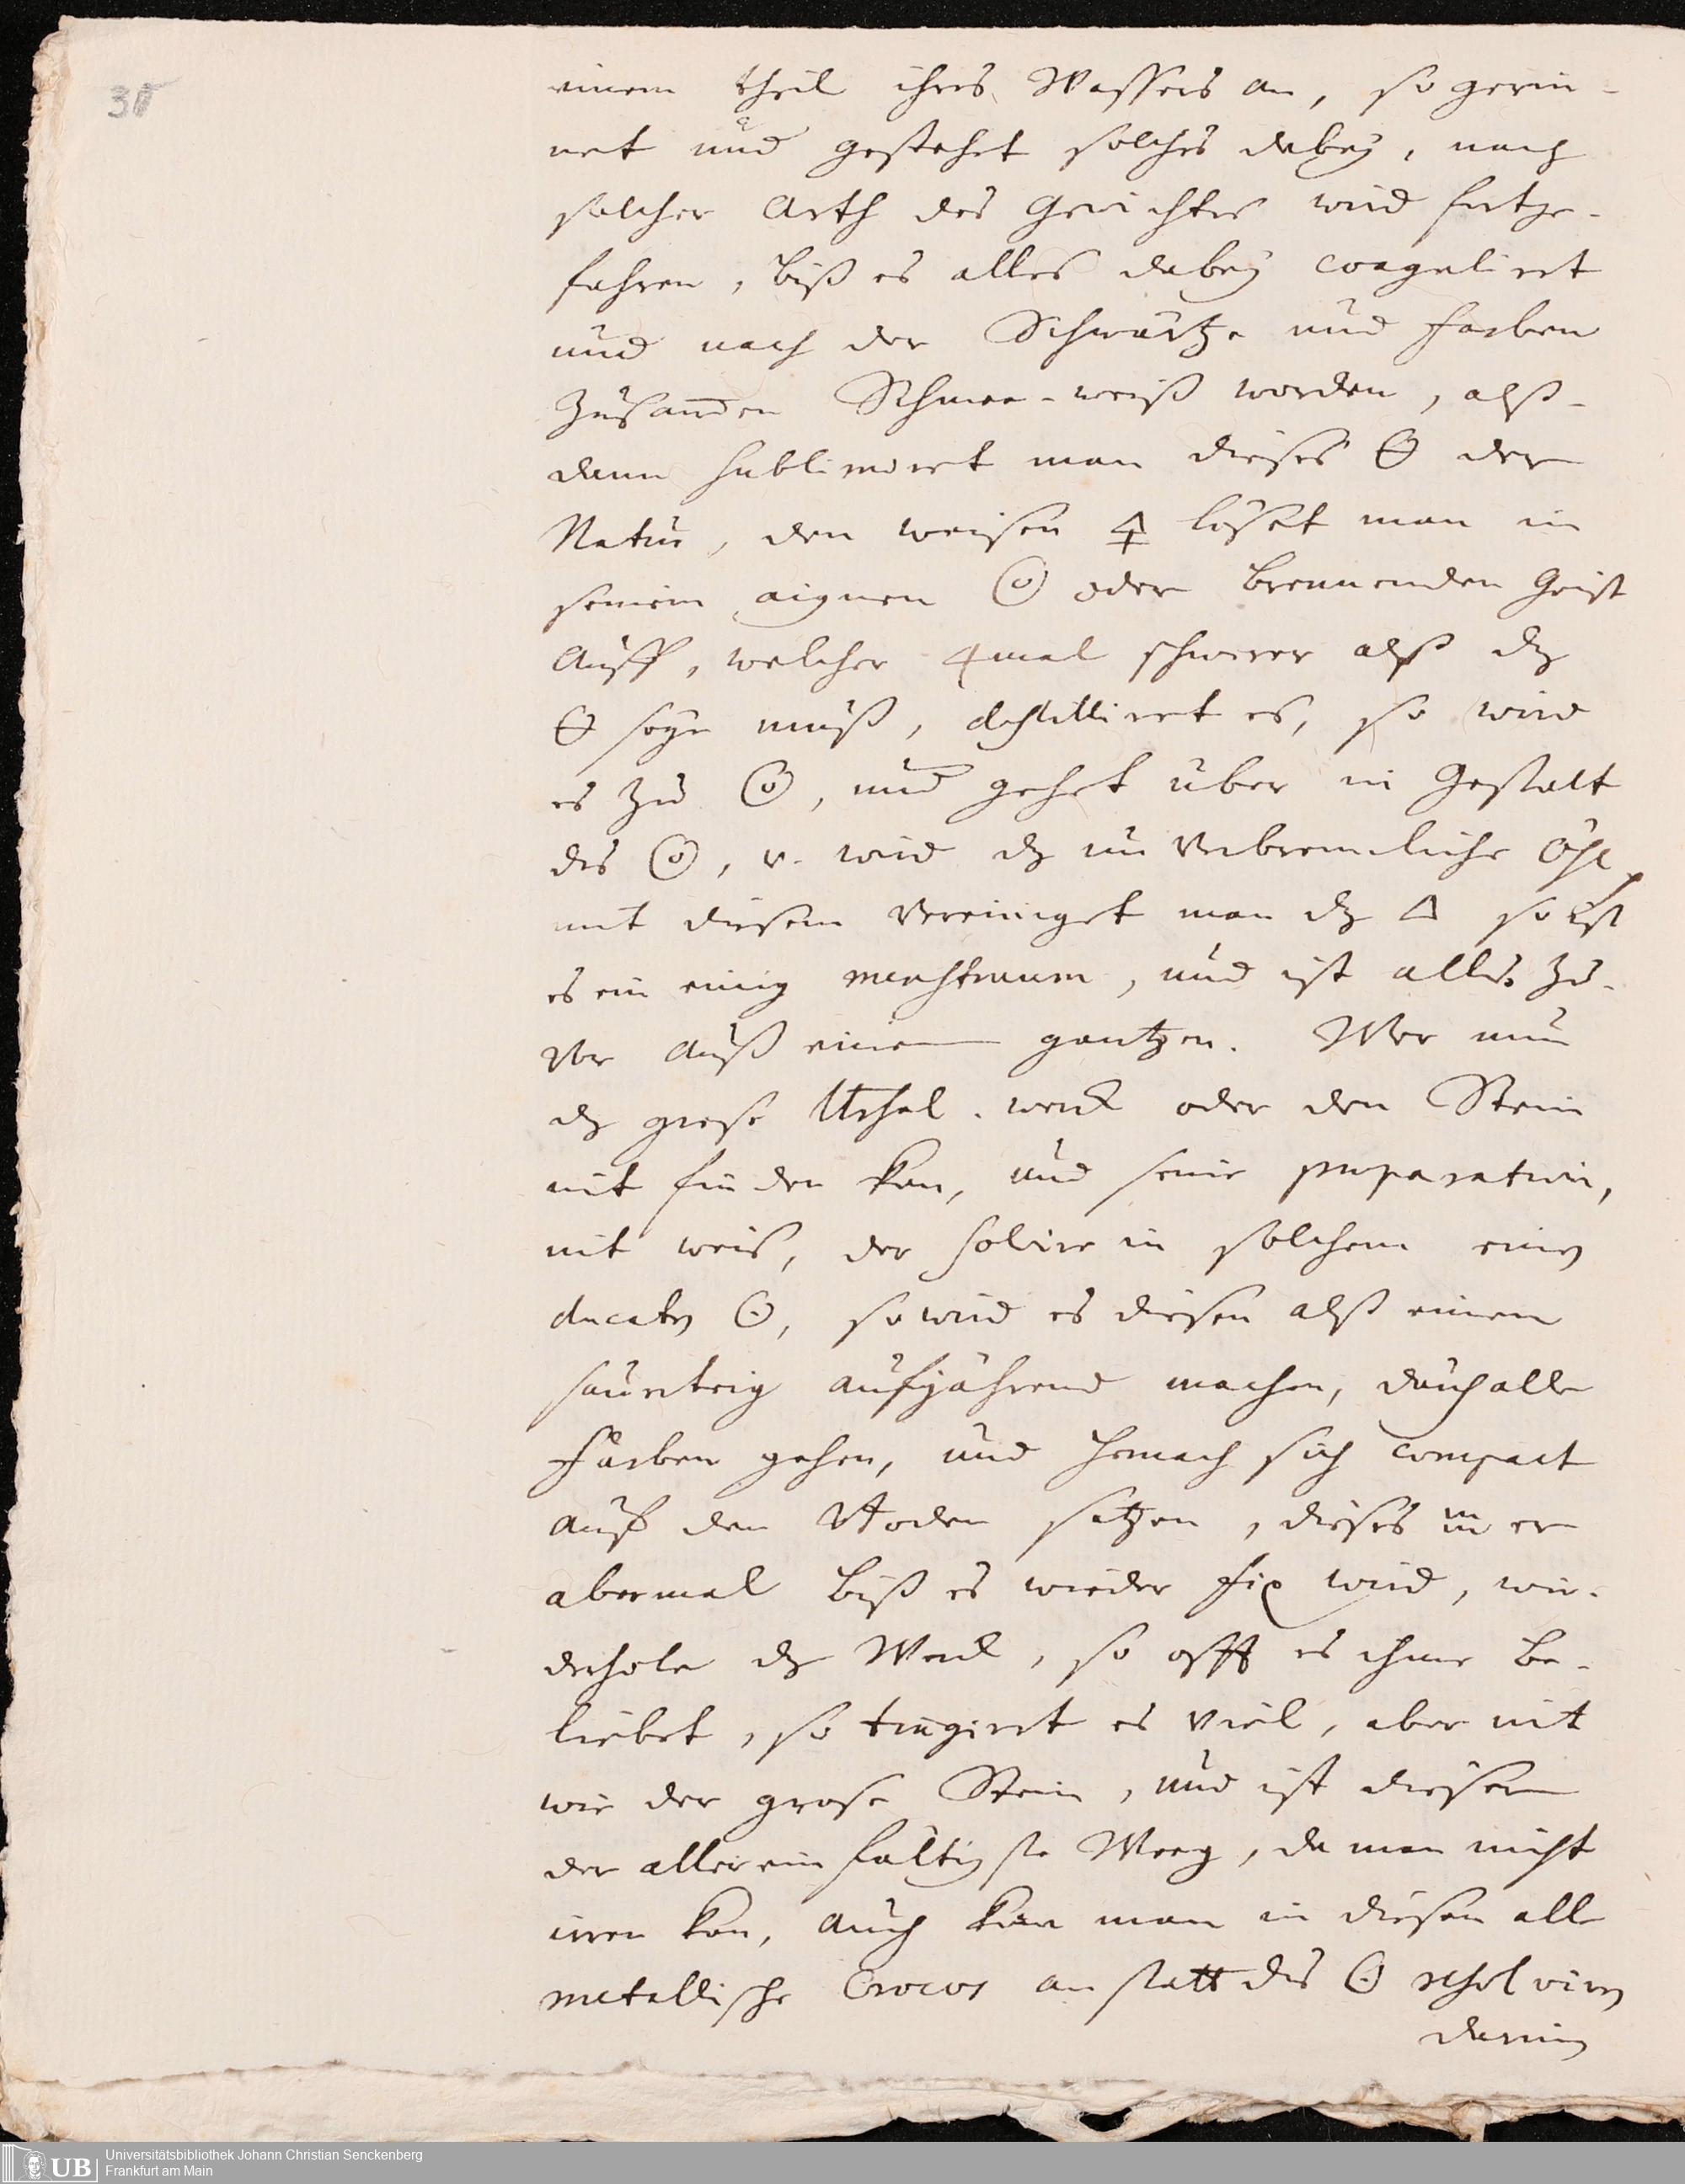 38
einem theil ihres Wassers an, so gerin-
net und gestehet solches dabey, nach
solcher Arth des Gewichtes wird fortge-
fahren, biß es alles dabey coagulirt
und nach der Schwärtze und farben
Schnee-weiß worden, alß-
dann sublimiret man dieses 🜔 der
Natur, den weisen 🜍 löset man in
seinem aignen ☉ oder brennenden Geist
Auff, welcher 4mal schwerer alß dz
🜔 seyn muß, destilliret es, so wird
es zu ☉, und gehet über in Gestalt
des ☉, v. wird dz unverbrennliche Öhl,
mit diesem vereiniget man dz 🜂 so ist
es ein einig menstruum, und ist alles zu-
vor auß einem gantzen. Wer nun
dz grose Vniversal-werck oder den Stein
nit finden kan, und seine præparation,
nit weis, der solvire in solchem einen
ducaten ☉, so wird es diesen alß einen
saurteig aufjährend machen, durch alle
Farben gehen, und hernach sich compact
auf den Boden setzen, dieses er
abermal biß es wieder fix wird, wie-
derhole dz Werck, so offt es ihme be-
liebet, so tingiret es viel, aber nit
wie der grose Stein, und ist dieser
der allereinfältigste Weeg, da man nicht
irren kan, auch kan man in diesen alle
metallische Crocos anstatt des ☉ resolviren
darin
UB
Universitätsbibliothek Johann Christian Senckenberg
Frankfurt am Main